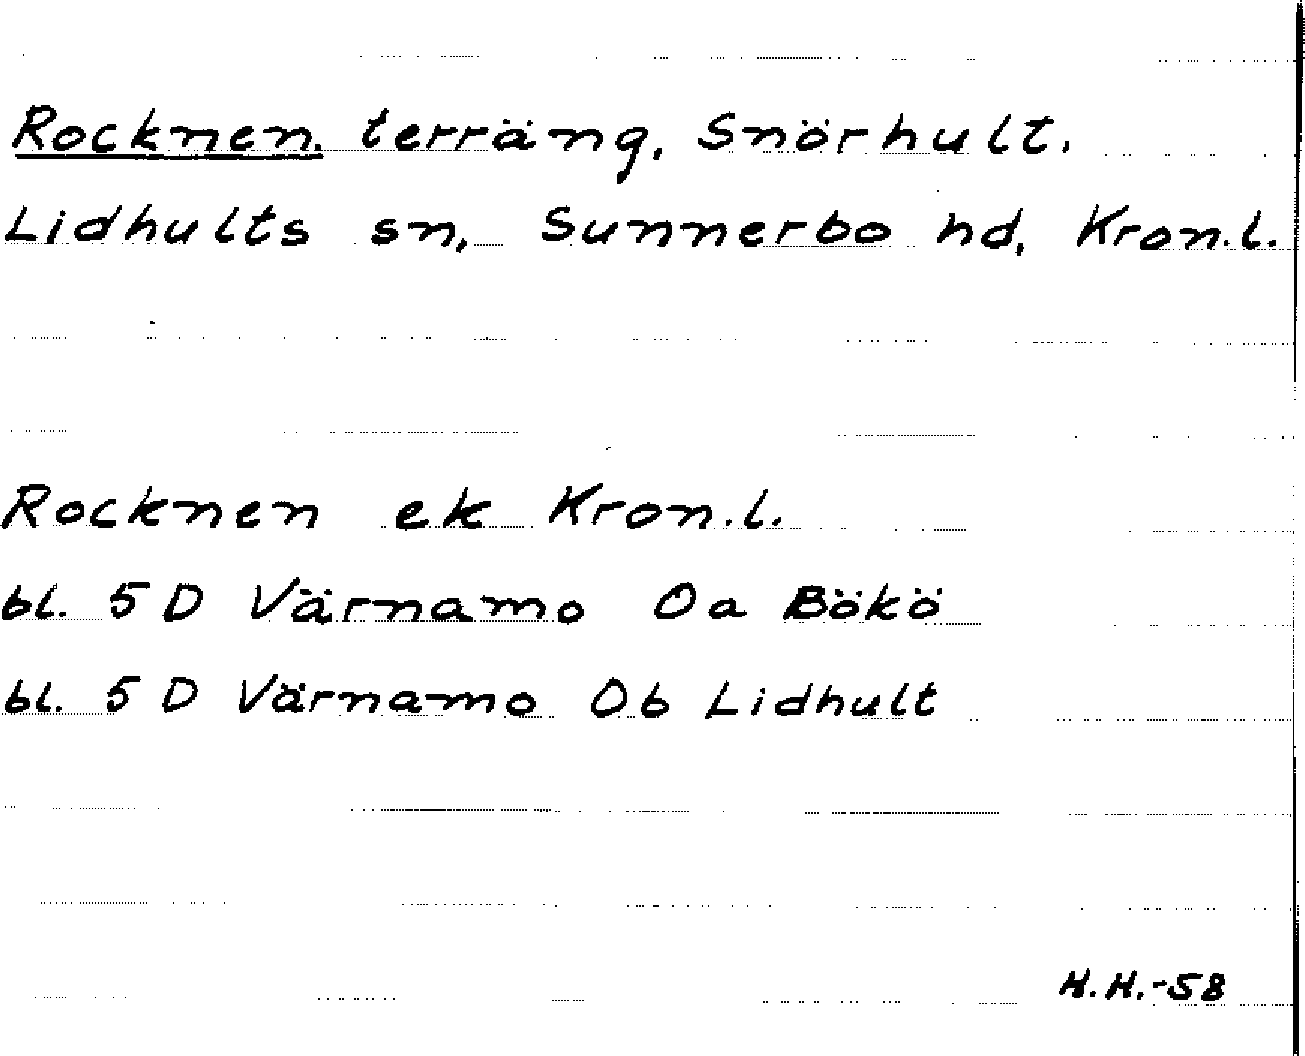 Rocknen. terräng, Snörhult.
Lidhults sn, Sunnerbo hd, Kron.l.
Rocknen ek Kron.l.
bl. 5 D Värnamo Oa Bökö
bl. 5 D Värnamo Ob Lidhult
H.H.-58